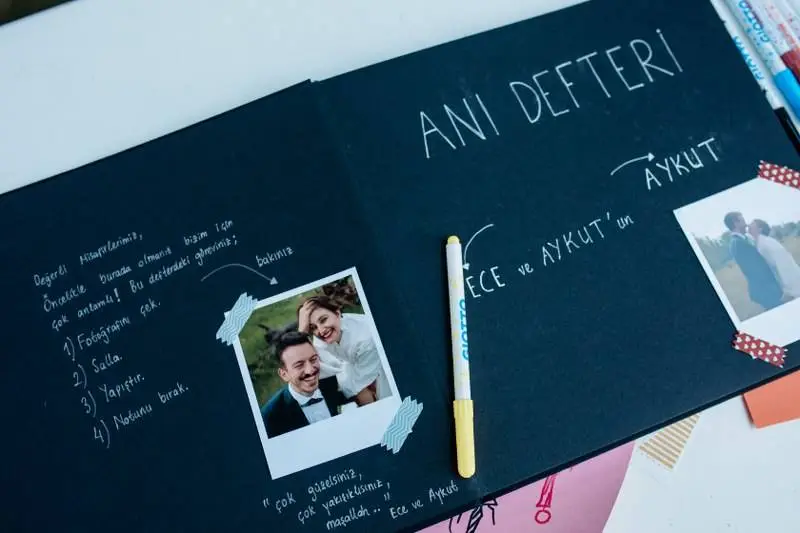 Değerli Misafirlerimiz,
Öncelikle burada olmanız bizim için
çok anlamlı! Bu defterdeki göreviniz;
1) Fotoğrafını çek.
2) Salla.
3) Yapıştır.
4) Notunu bırak.
bakınız
"çok güzelsiniz,
çok yakışıklısınız,
maşallah.."
Ece ve Aykut
ANI DEFTERİ
AYKUT
ECE ve AYKUT'un
GIOTTO
GIOTTO